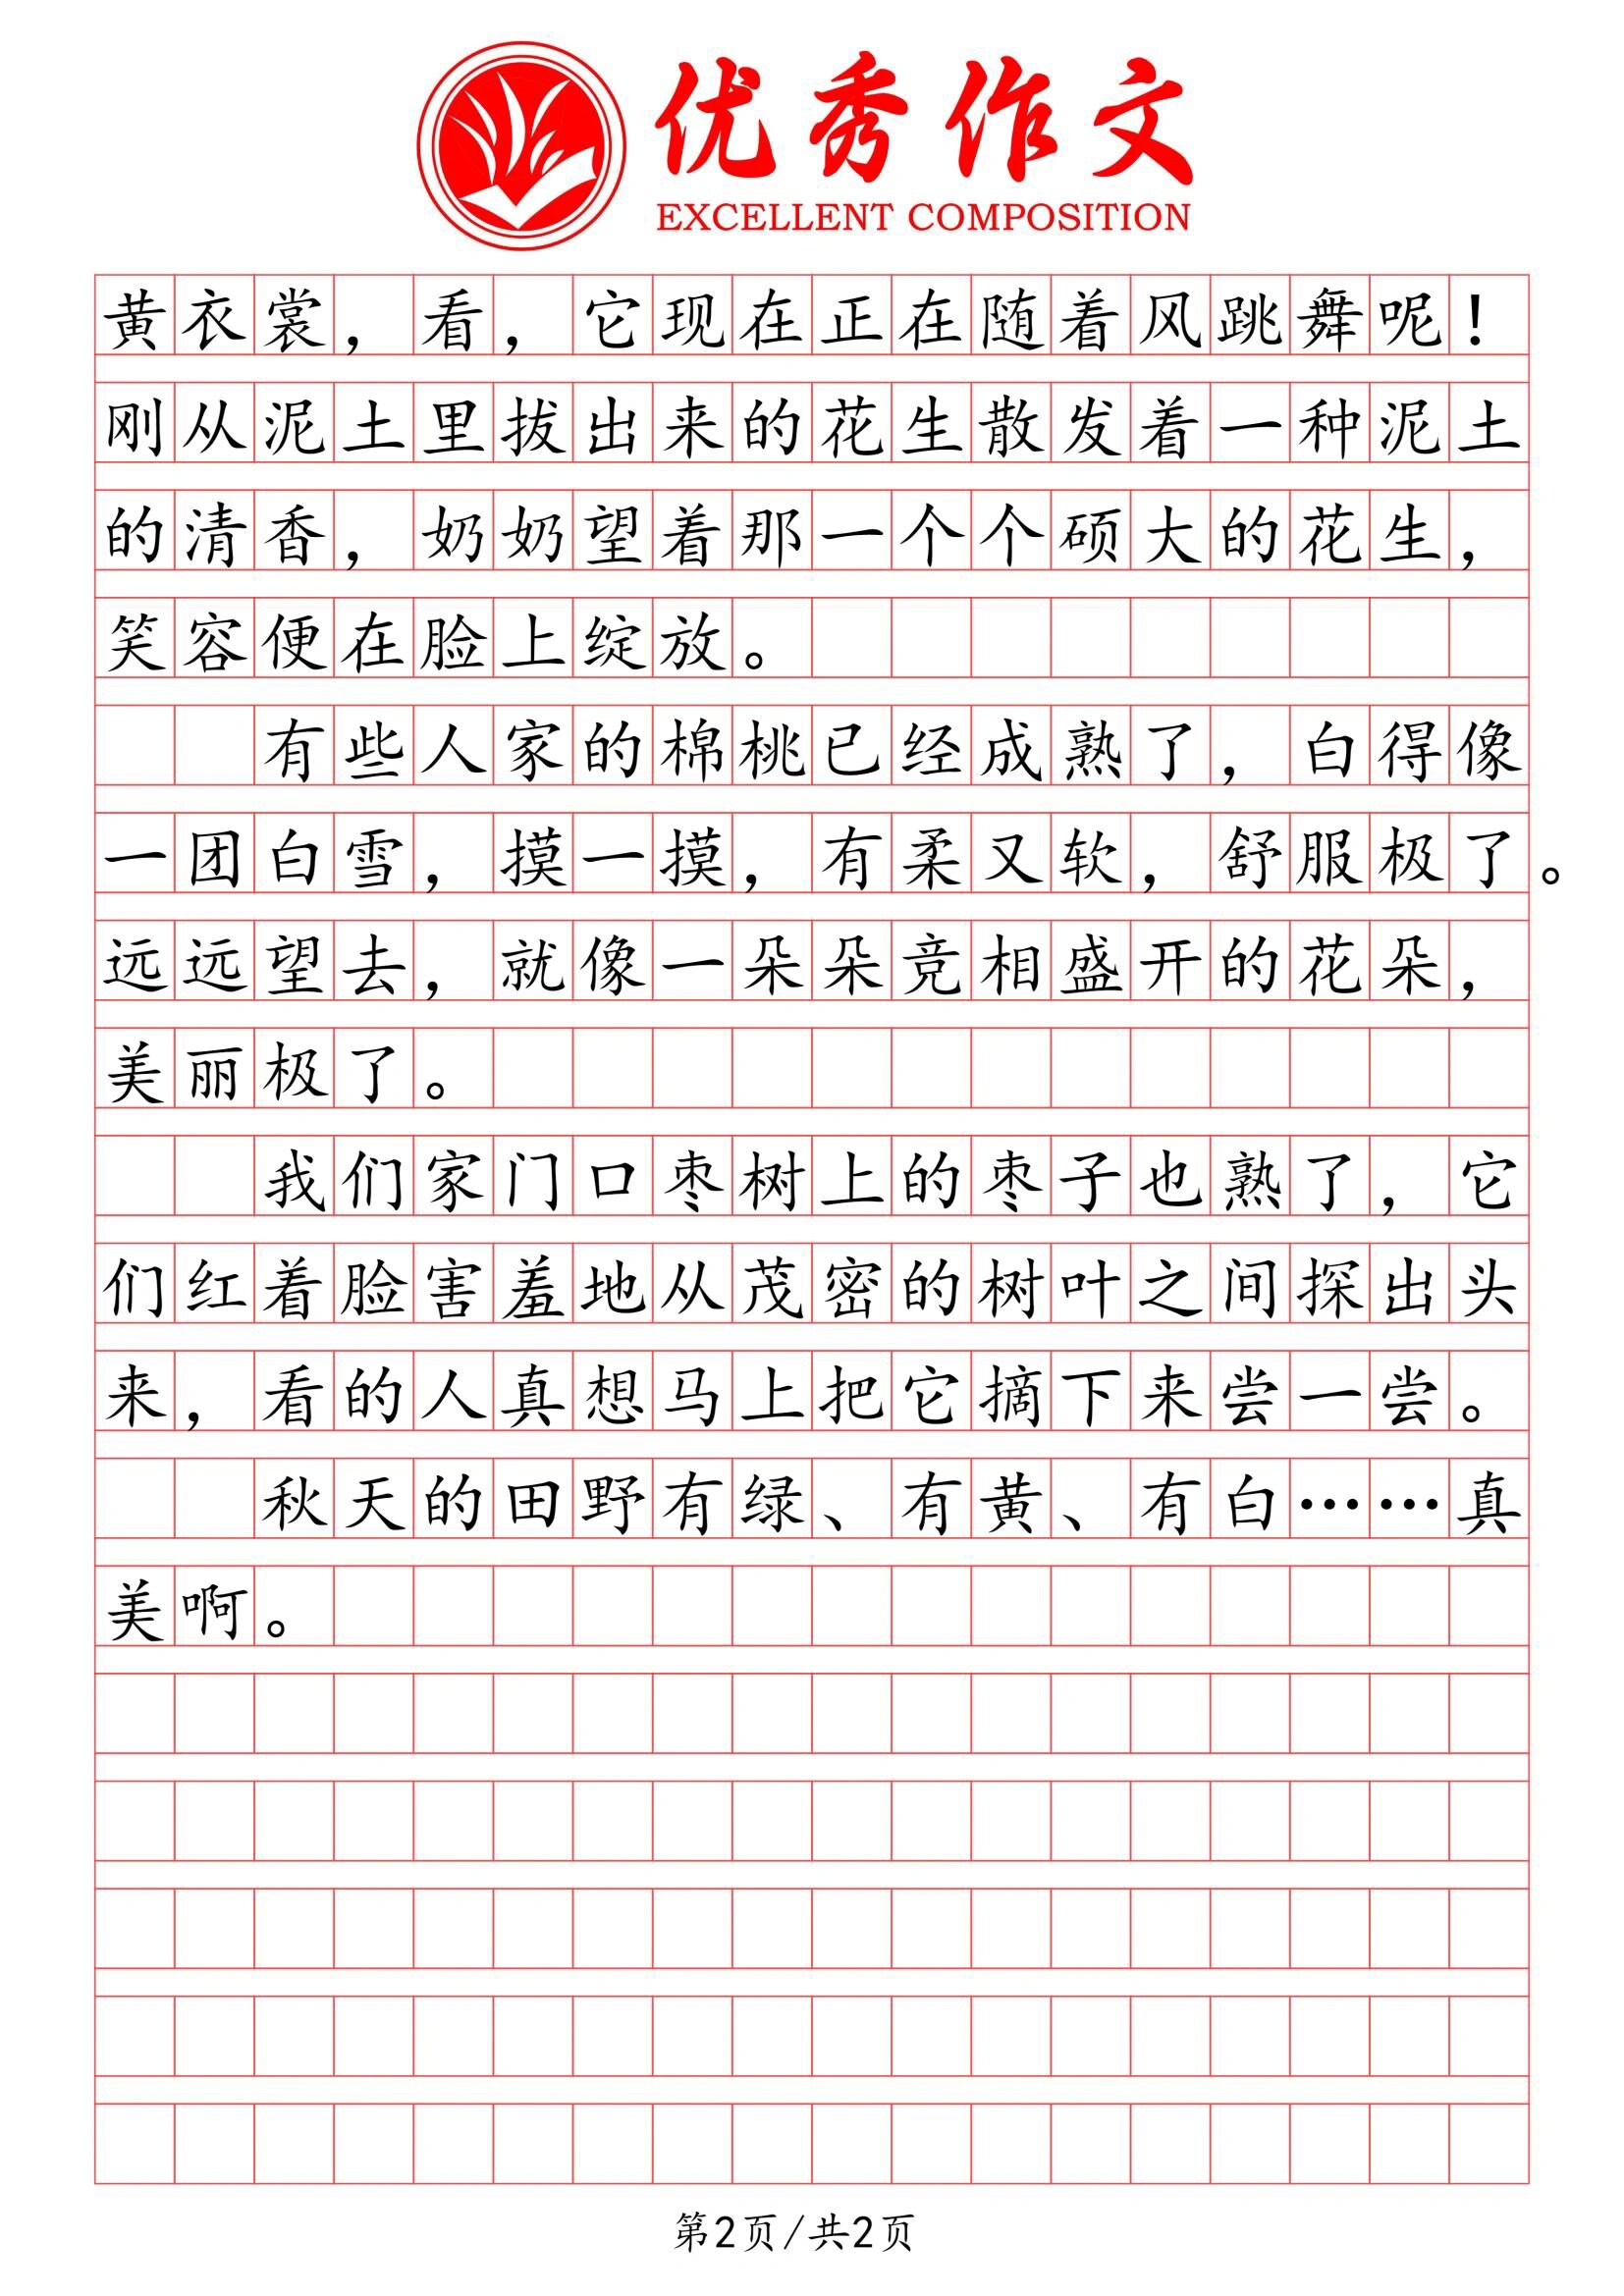 优秀作文
EXCELLENT COMPOSITION
黄衣裳，看，它现在正在随着风跳舞呢！
刚从泥土里拔出来的花生散发着一种泥土
的清香，奶奶望着那一个个硕大的花生，
笑容便在脸上绽放。
有些人家的棉桃已经成熟了，白得像
一团白雪，摸一摸，有柔又软，舒服极了。
远远望去，就像一朵朵竞相盛开的花朵，
美丽极了。
我们家门口枣树上的枣子也熟了，它
们红着脸害羞地从茂密的树叶之间探出头
来，看的人真想马上把它摘下来尝一尝。
秋天的田野有绿、有黄、有白……真
美啊。
第2页/共2页